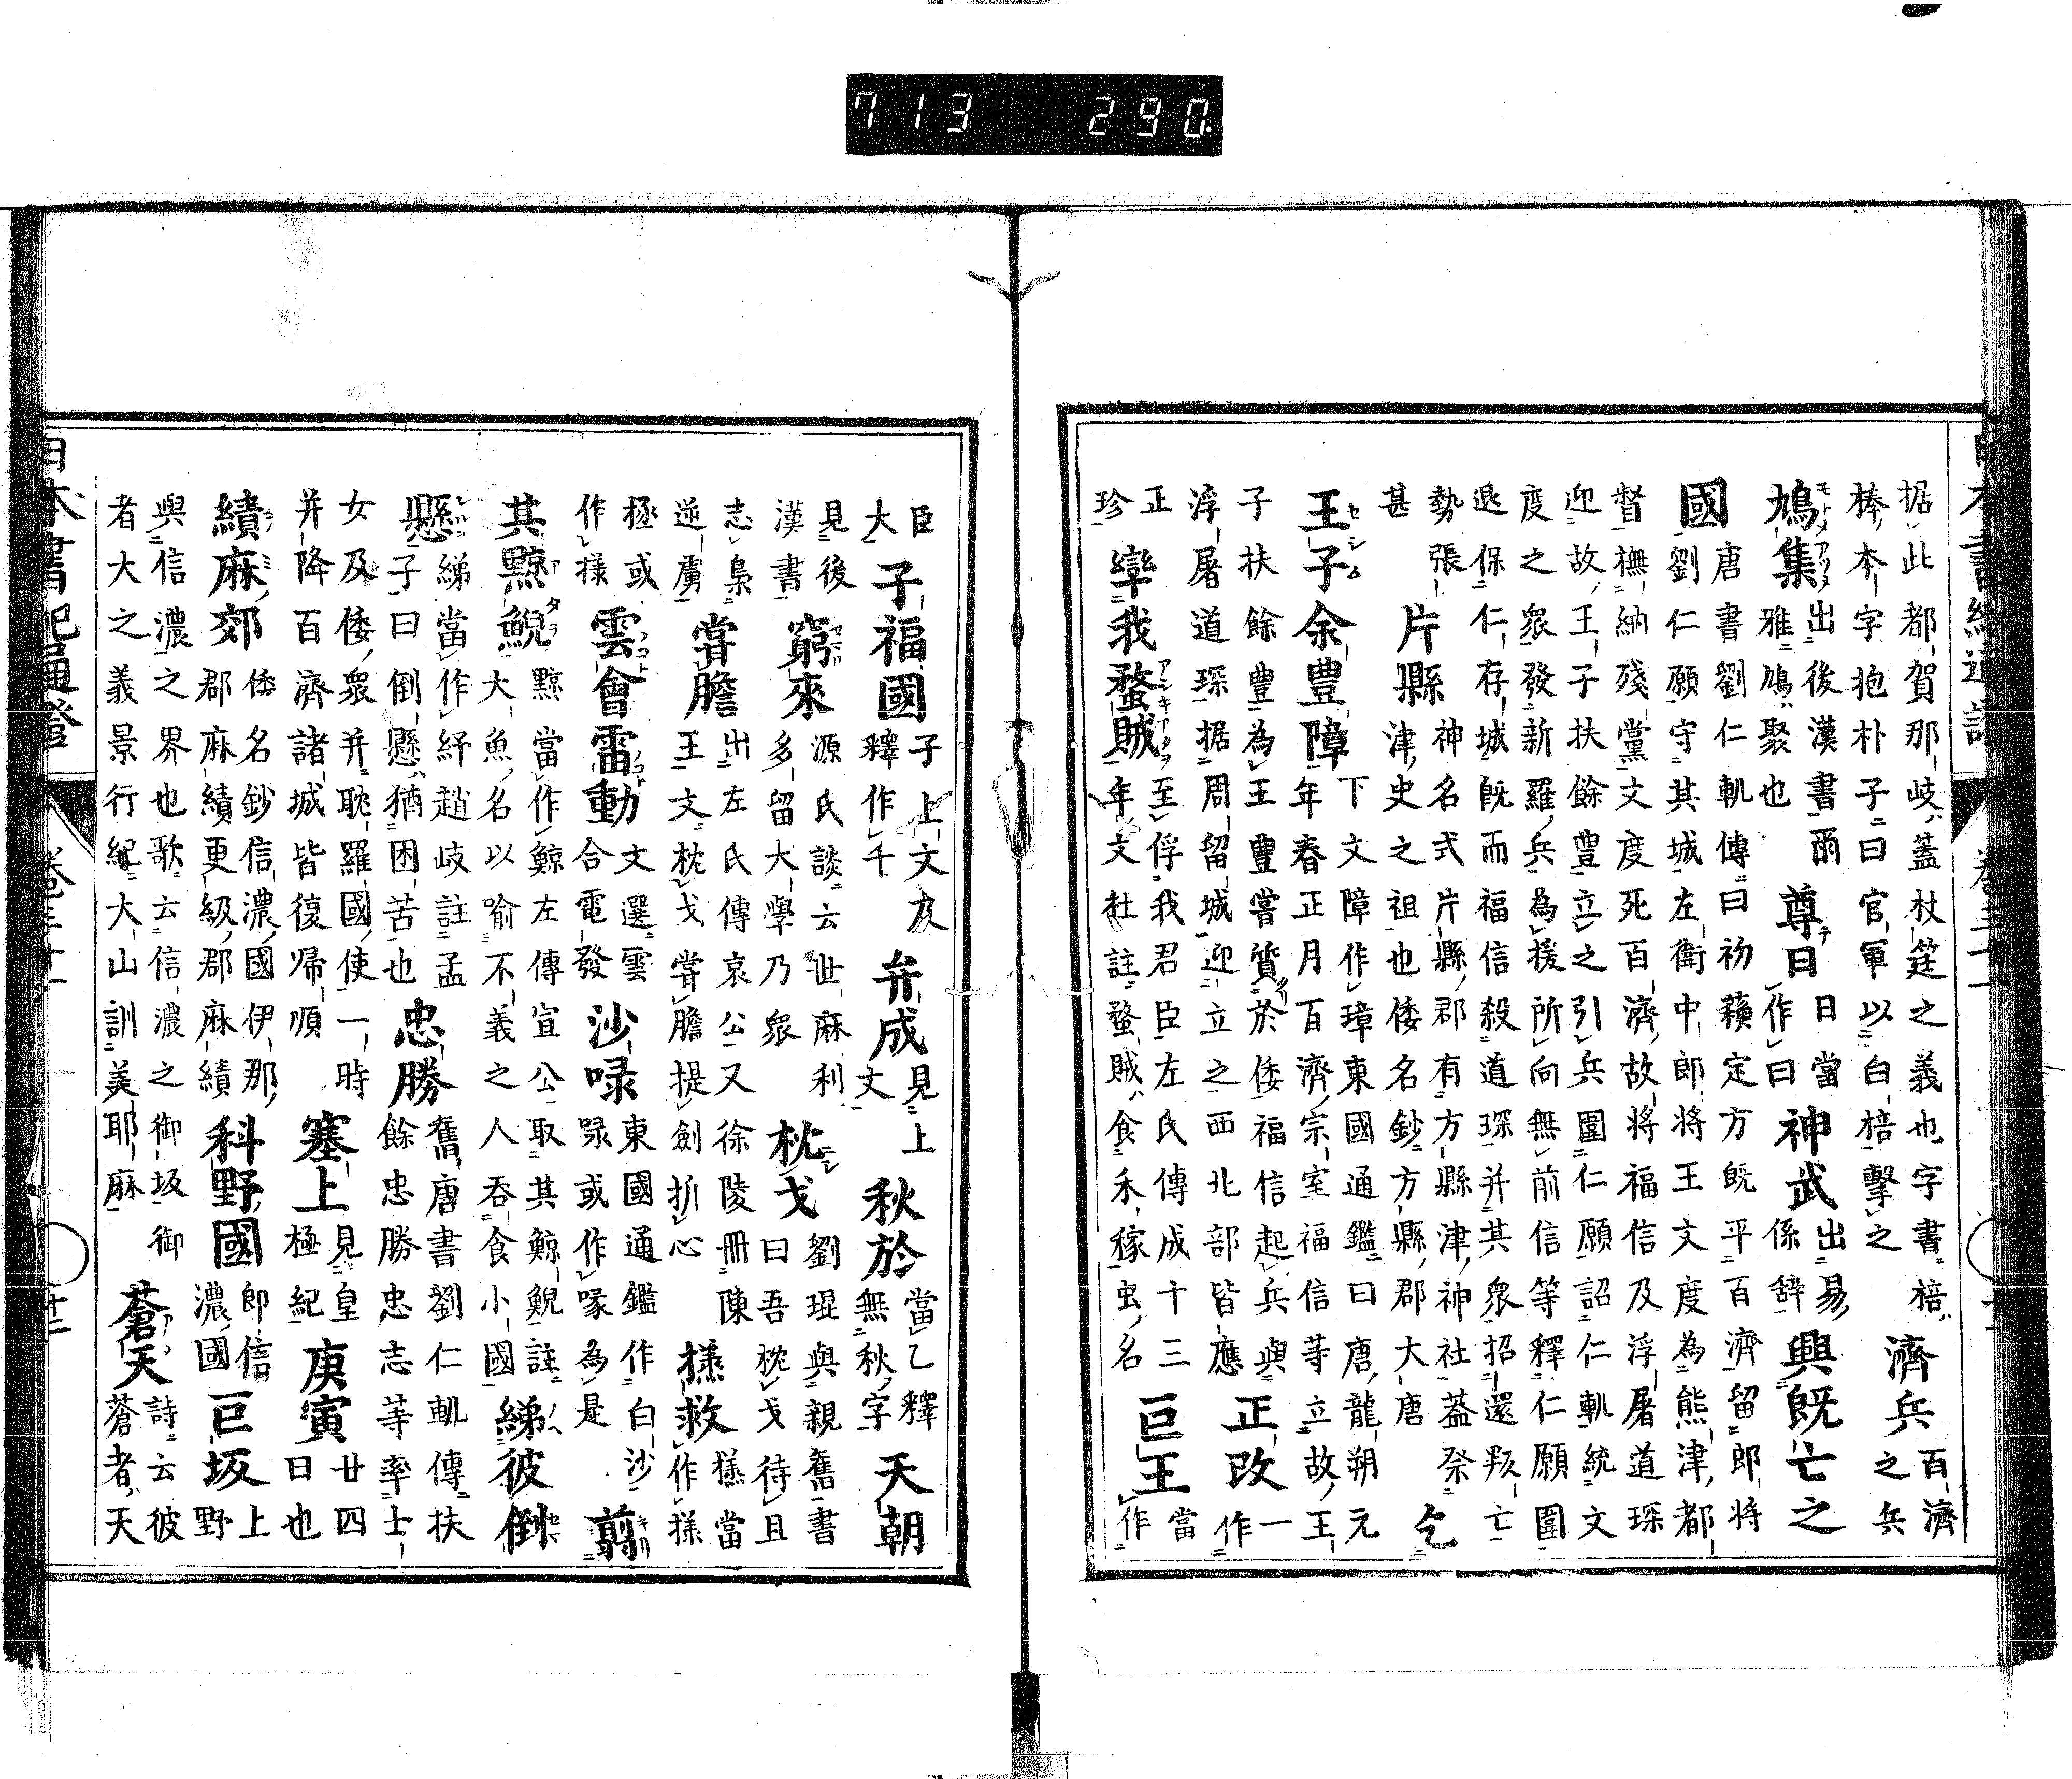 据此都賀那岐蓋杖筳之義也字書棓
棒本字抱朴子曰官軍以白棓擊之
濟兵 百濟
之兵
鳩集 出後漢書雨
雅鳩聚也
尊日 日當
作曰
神武 出易
係辞
興既亡之
國 唐書劉仁軌傳曰初蘓定方既平百濟留郎將
劉仁願守其城左衛中郎將王文度為熊津都
督撫納殘黨文度死百濟故將福信及浮屠道琛
迎故王子扶餘豊立之引兵圍仁願詔仁軌統文
度之衆發新羅兵為援所向無前信等釋仁願圍
退保仁存城既而福信殺道琛并其衆招還叛亡
勢張
甚
片縣 神名式片縣郡有方縣津神社蓋祭
津史之祖也倭名鈔方縣郡大唐
乞
王子余豊障 下文障作璋東國通鑑曰唐龍朔元
年春正月百濟宗室福信等立故王
子扶餘豊為王豊嘗質於倭福信起兵與
浮屠道琛据周留城迎立之西北部皆應
正改 一
作
正
珍
孿我蝥賊 至俘我君臣左氏傳成十三
年文杜註蝥賊食禾稼虫名
巨王 當
作
臣
大
子福國 子上文及
釋作千
弁成 見上
文
秋於 當乙釋
無秋字
天朝
見後
漢書
窮來 源氏談云世麻利
多留大學乃衆
枕戈 劉琨與親舊書
曰吾枕戈待且
志梟
逆虜
甞膽 出左氏傳哀公又徐陵冊陳
王文枕戈甞膽提劍折心
㨾救 㨾當
作㨾
極或
作㨾
雲會雷動 文選雲
合電發
沙㖨 東國通鑑作白沙
㖨或作喙為是
翦
其黥鯢 黥當作鯨左傳宣公取其鯨鯢註
大魚名以喻不義之人吞食小國
綈彼倒
懸 綈當作紓趙岐註孟
子曰倒懸猶困苦也
忠勝 舊唐書劉仁軌傳扶
餘忠勝忠志等率士
女及倭衆并耽羅國使一時
并降百濟諸城皆復帰順
塞上 見皇
極紀
庚寅 廿四
日也
續麻郊 倭名鈔信濃國伊那
郡麻續更級郡麻續
科野國 即信
濃國
巨坂 上
野
與信濃之界也歌云信濃之御坂御
者大之義景行紀大山訓美耶麻
蒼天 詩云彼
蒼者天
日本書紀通證 卷三十一 十二
713 290